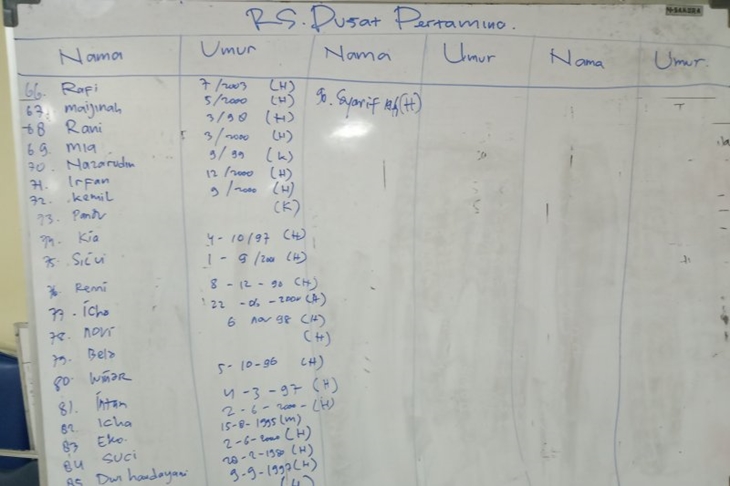 RS. Pusat Pertamina.
Nama Umur Nama Umur Nama Umur.
66. Rafi 7/2003 (H) 90. Syarif (H)
67. 5/2000 (H)
68 Rani 3/98 (H)
69. Mia 3/2000 (H)
70. Nazarudin 9/99 (K)
71. Irfan 12/2000 (H)
72. kemil 9/2000 (H)
73. (K)
74. Kia 4-10/97 (H)
75. 1-9/2001 (H)
76 Renni 8-12-90 (H)
77. Icha 22-06-2000 (H)
78. Novi 6 Nov 98 (H)
79. Bela (H)
80. 5-10-96 (H)
81. Intan 4-3-97 (H)
82. Icha 2-6-2000-(H)
83 Eko. 15-8-1995 (M)
84 SUCI 2-6-2000 (H)
85 Dwi handayani 20-2-1980 (H)
9-9-1997 (H)
(H)